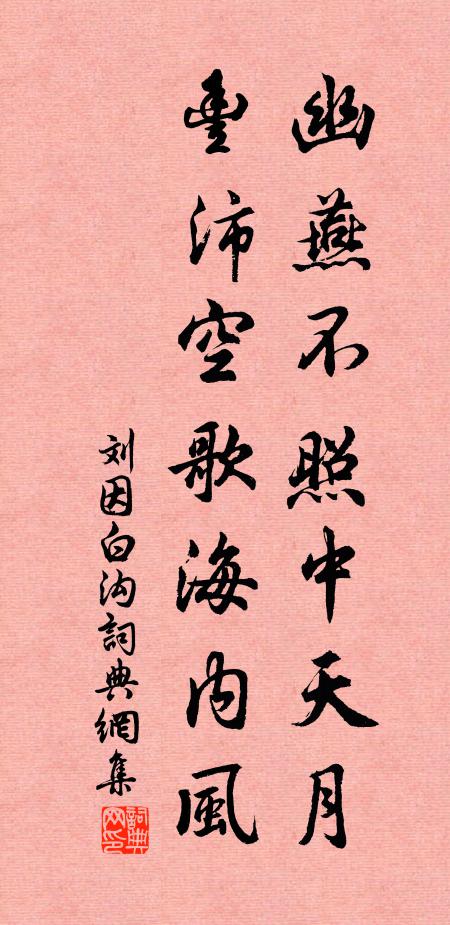 幽燕不照中天月
豊沛空歌海内風
刘因白沟詞典網集
詞典网印